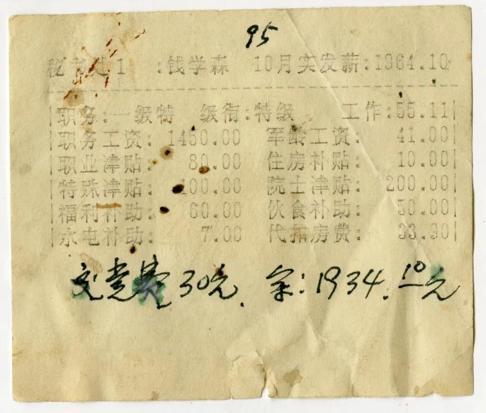 95
秘书处1 :钱学森 10月实发薪:1964.10
职务:一级特 级衔:特级 工作:55.11
职务工资: 1480.00 军龄工资: 41.00
职业津贴: 80.00 住房补贴: 10.00
特殊津贴: 100.00 院士津贴: 200.00
福利补助: 60.00 伙食补助: 50.00
水电补助: 7.00 代扣房费: 33.90
交党费30元. 余:1934.10元